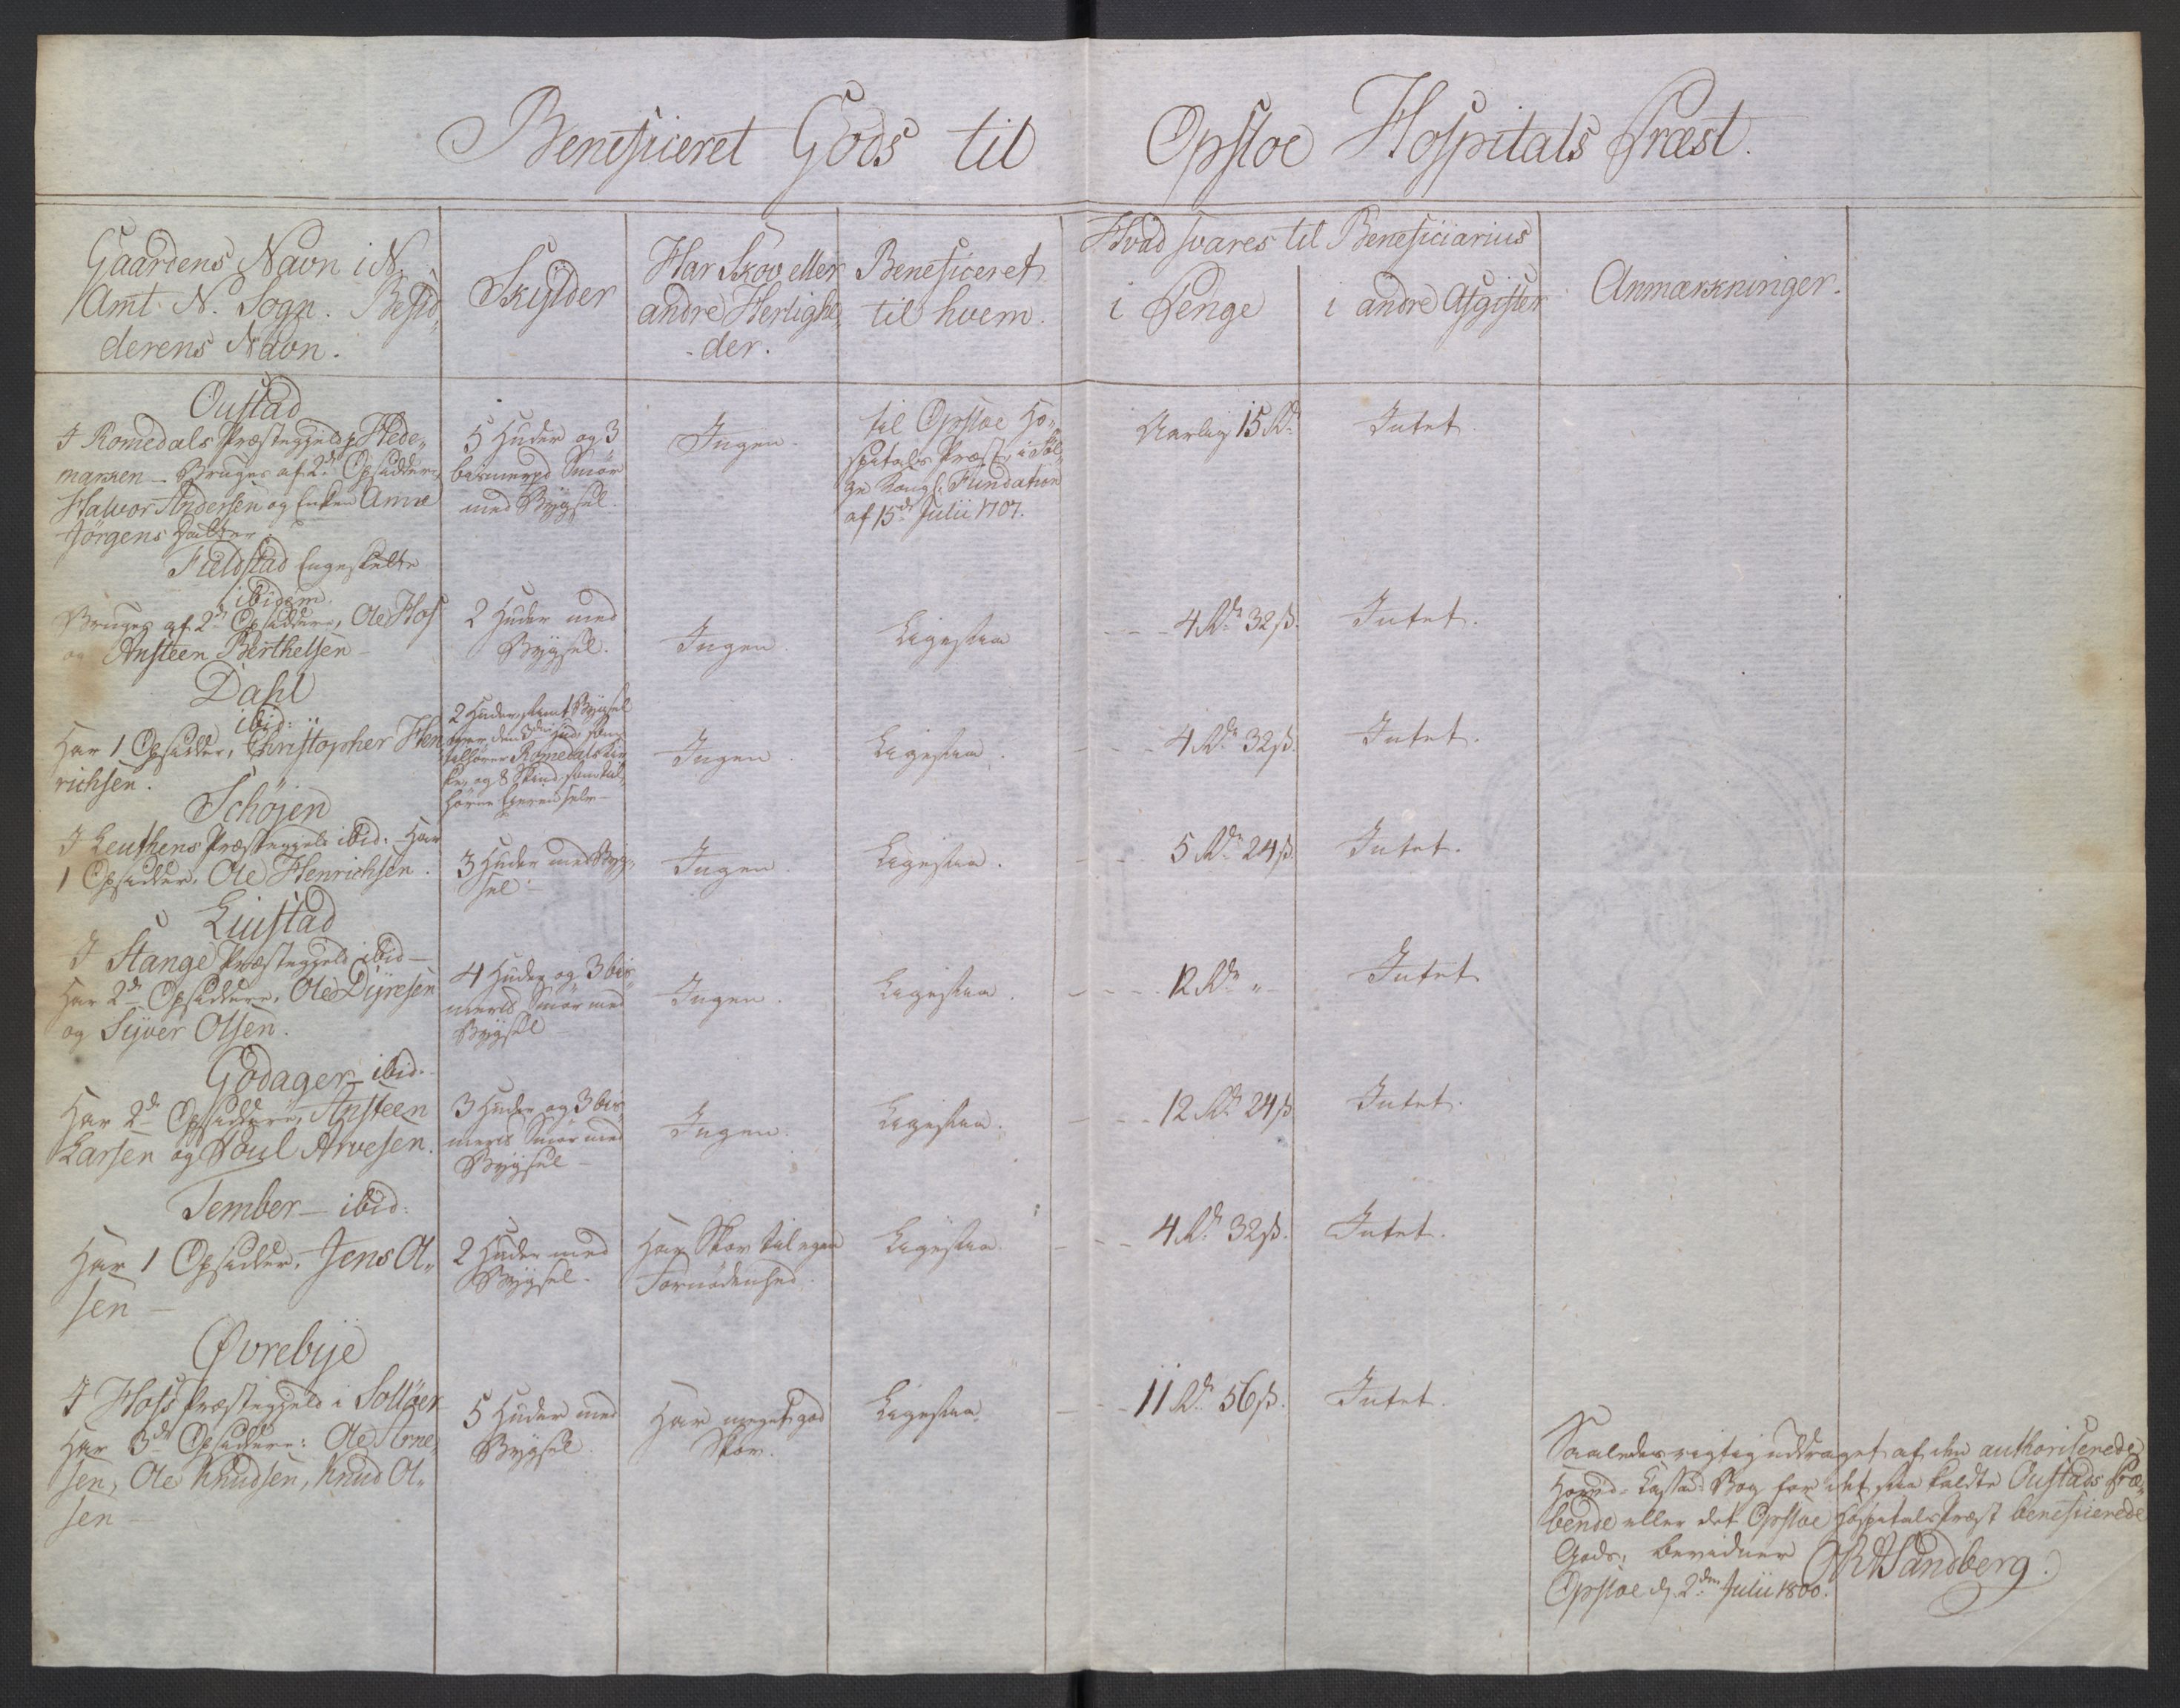 Beneficeret Gods til Opsloe Hospitals Præst.
Gaardens Navn i N.
Amt N. Sogn. Besid,,
derens Navn.
Skylder
Har Skov eller
andre Herlighe,,
der.
Beneficeret
til hvem.
Hvad svares til Beneficiarius
i Penge
i andre Afgifter
Anmærkninger.
Oustad
I Romedals Præstegjeld p. Hede,,
marken - Bruges af 2de Opsiddere,
Halvor Andersen og Enken Anne
Jörgens Datter.
5 Huder og 3
bismerpd Smör
med Bÿgsel.
Ingen.
til Opsloe Ho,,
spitals Præst, i Föl,,
ge Kongl. Fundation
af 15de Julii 1707.
Aarlig 15 Rd.
Intet.
Fieldstad Engeslette
ibidem.
Bruges af 2de Opsiddere, Ole Hof
og Ansteen Berthelsen
2 Huder med
Bÿgsel.
Ingen.
Ligesaa
4 Rdr 32 ß.
Intet.
Dahl
ibid:
Har 1 Opsidder, Christopher Hen
richsen.
2 Huder, samt Bÿgsel
over den 3die Hud, som
tilhører Romedals Kir,,
ke, og 8 Skind, som til,,
hører Eieren selv -
Ingen
Ligesaa.
4 Rdr 32 ß.
Intet.
Schöjen
I Leuthens Præstegjeld ibid. Har
1 Opsidder, Ole Henrichsen.
3 Huder med Bÿg,,
sel -
Ingen.
Ligesaa.
5 Rdr 24 ß.
Intet.
Liustad
I Stange Præstegjeld ibid -
Har 2de Opsiddere, Ole Dÿresen
og Sÿver Olsen.
4 Huder og 3 bis,,
merpd Smör med
Bÿgsel -
Ingen.
Ligesaa.
12 Rdr "
Intet
Godager - ibid.
Har 2de Opsiddere, Ansteen
Larsen og Poul Arvesen.
3 Huder og 3 bis,,
merpd Smör med
Bÿgsel -
Ingen.
Ligesaa.
12 Rdr 24 ß
Intet.
Tember - ibid:
Har 1 Opsidder, Jens Ol,,
sen -
2 Huder med
Bÿgsel.
Har Skov til egen
Fornödenhed.
Ligesaa.
4 Rdr 32 ß.
Intet.
Øvrebÿe
I Hofs Præstegjeld i Sollöer
Har 3de Opsiddere: Ole Arne,,
sen, Ole Knudsen, Knud Ol,,
sen -
5 Huder med
Bÿgsel.
Har meget god
Skov.
Ligesaa.
11 Rdr 56 ß.
Intet.
Saaledes rigtig uddraget af den authoriserede
Hoved- Bog for det saa kaldte Oustads Præ,,
bende eller det Opsloe Hospitals Præst beneficerede
Gods, bevidner
Opsloe d. 2den Julii 1800.
Sandberg.